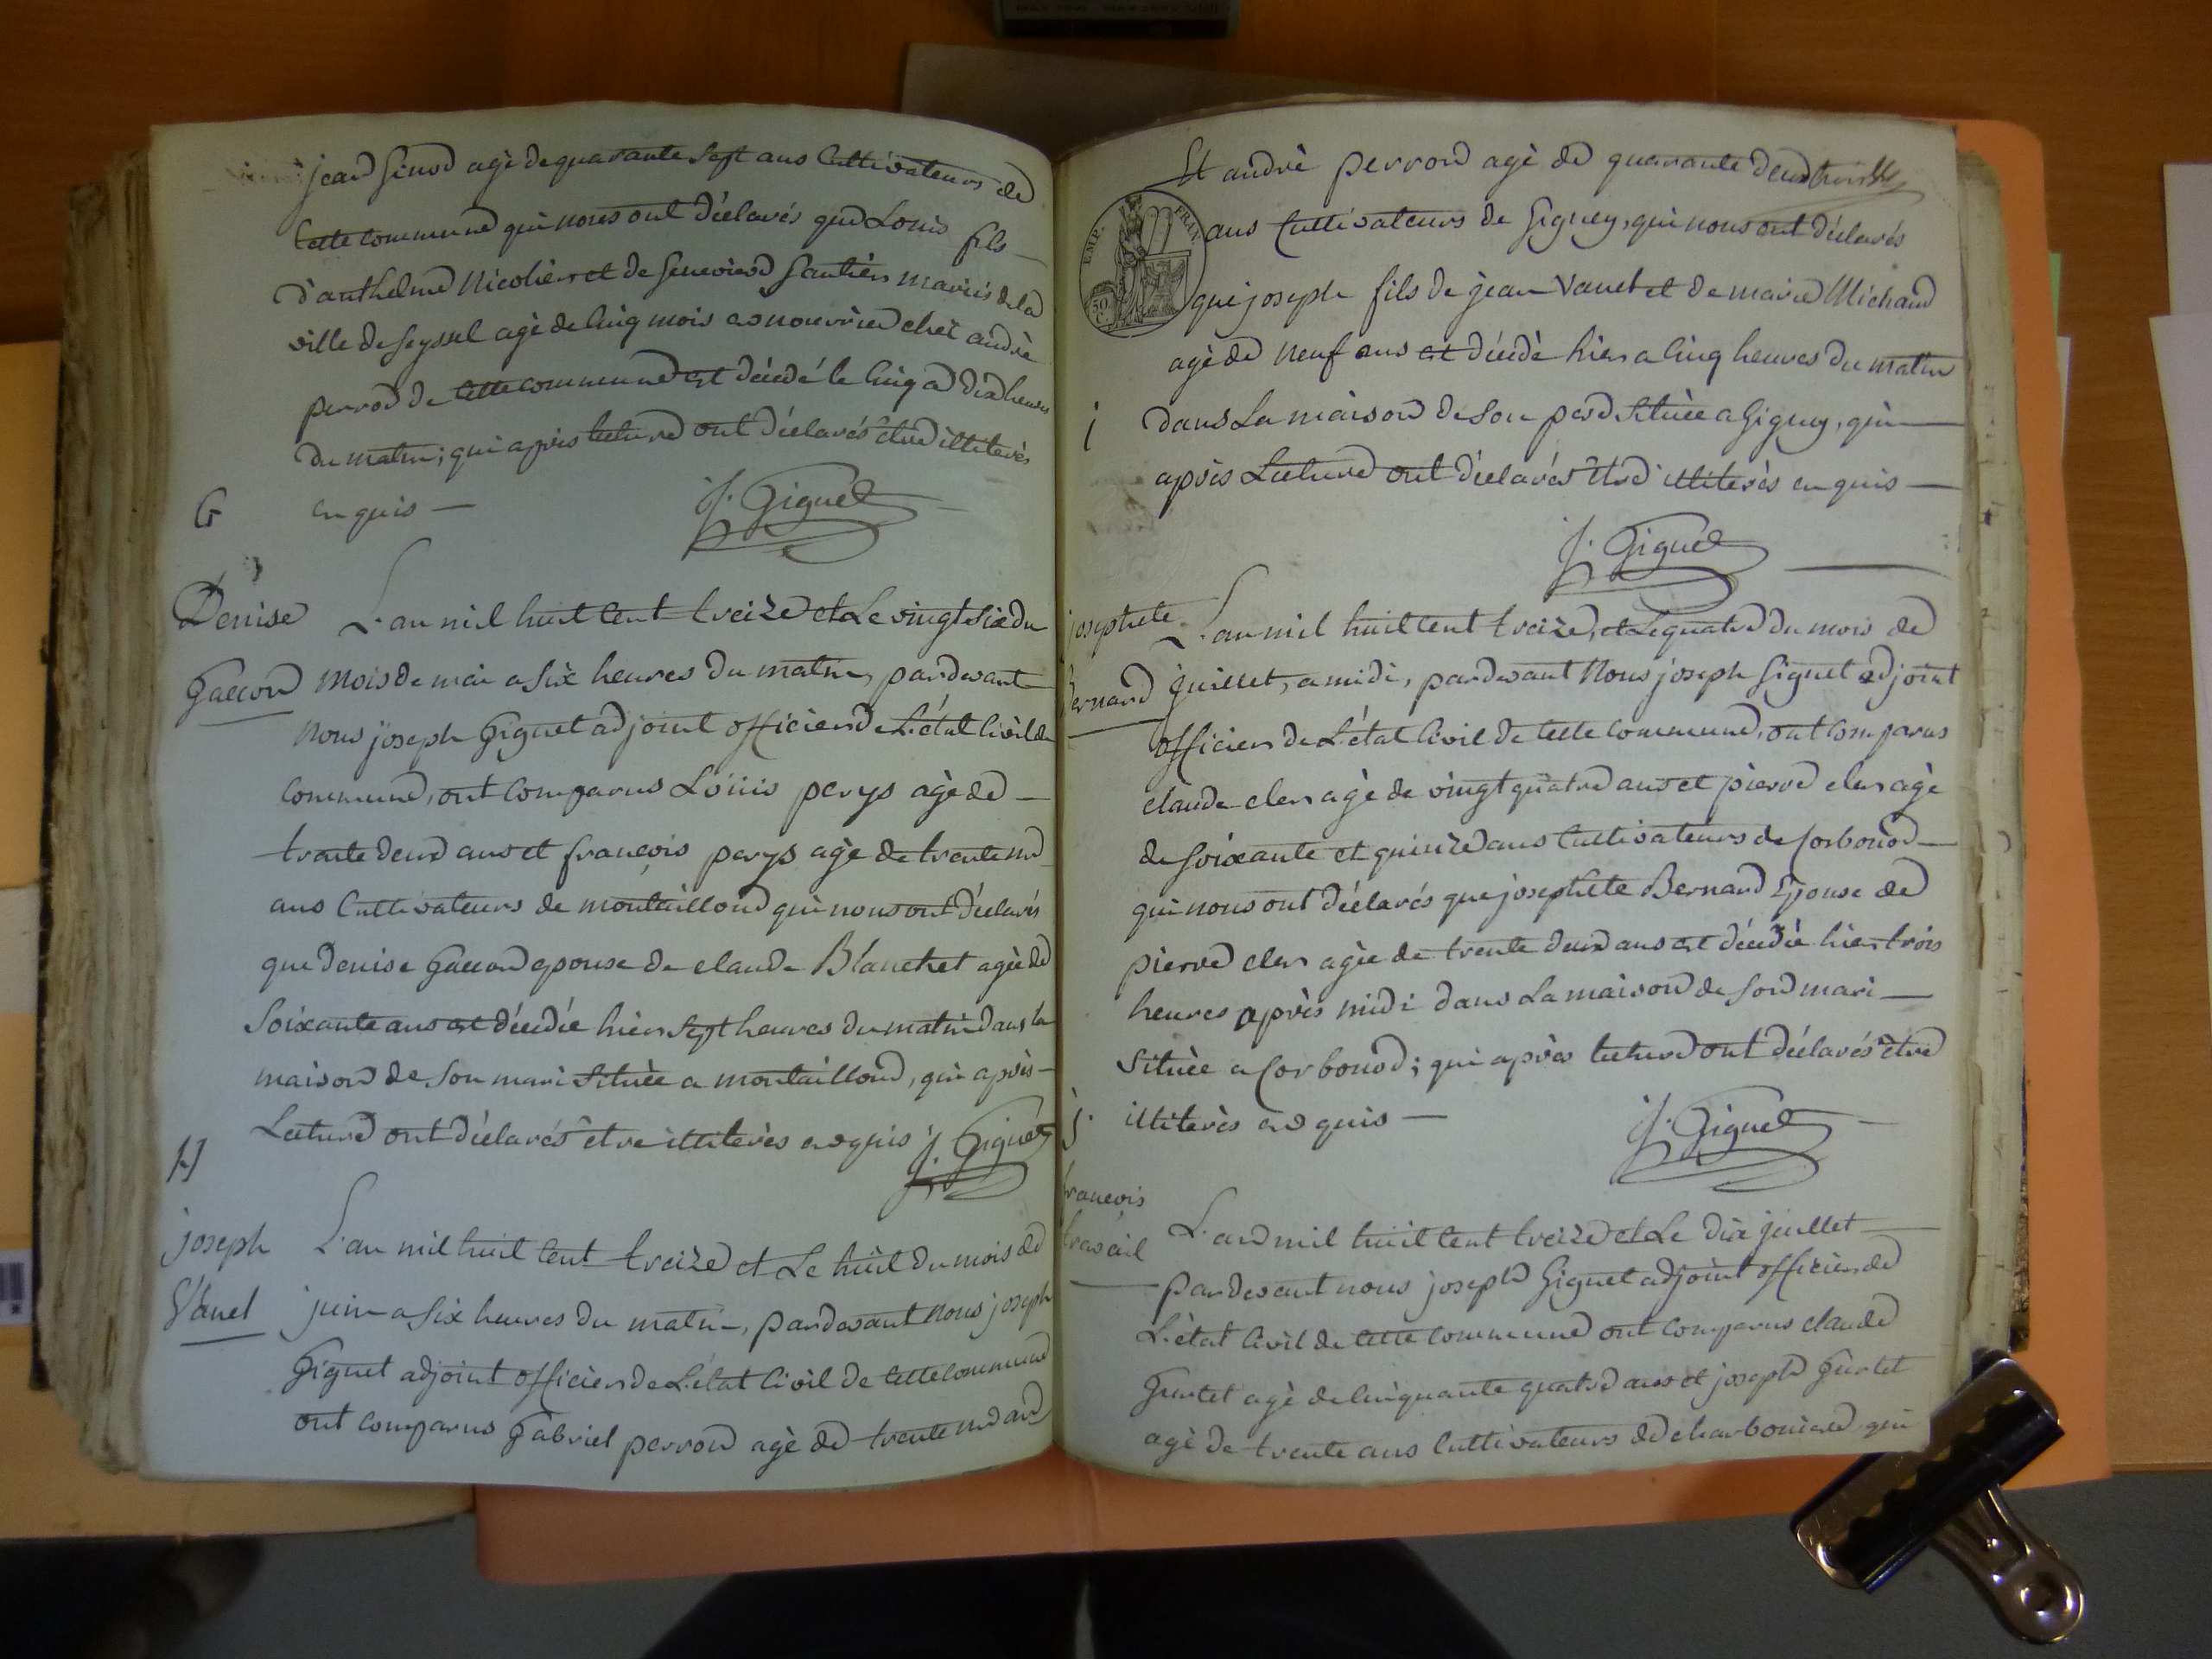 jean Ginod agè de quarante sept ans Cultivateurs de
Cette commune qui nous ont déclarés que Louis fils
d'anthelme Nicolier et de Genevieve Gautier mariés de la
ville de Seyssel agè de Cinq mois en nourrice chez andrè
perrod de Cette commune est décédé le Cinq a dix heures
du matin; qui après lecture ont déclarés être illiterès
G
en quis — J. Giguet
Denise L'an mil huit Cent treize et Le vingt Six du
Gaccon mois de mai a Six heures du matin, pardevant
nous joseph Giguet adjoint officier de L'état Civil de
Commune, ont Comparus Louis perys agè de —
trente deux ans et françois perys agè de trente un
ans Cultivateurs de montaillond qui nous ont déclarés
que Denise Gaccon epouse de claude Blanchet agèe de
Soixante ans est décédée hier Sept heures du matin dans la
maison de Son mari Situèe a montaillond, qui après —
Lecture ont déclarés être illiterès en quis J. Giguet
H
joseph L'an mil huit Cent treize et Le huit du mois de
Vanet juin a Six heures du matin, pardevant nous joseph
Giguet adjoint officier de L'état Civil de Cette Commune
ont Comparus Gabriel perron agè de trente un an
Et andrè perron agè de quarante deux
EMP. FRAN.
50 C.
ans Cultivateurs de Gigney, qui nous ont déclarés
que joseph fils de jean Vanet et de marie Michaud
agè de neuf ans est décédè hier a Cinq heures du matin
i
dans La maison de Son pere Situèe a Gigney, qui —
après Lecture ont déclarés être illiterès en quis —
J. Giguet
josephete L'an mil huit Cent treize, et Le quatre du mois de
Bernard juillet, a midi, pardevant Nous joseph Giguet adjoint
officier de L'état Civil de Cette Commune, ont Comparus
claude cler agè de vingt quatre ans et pierre cler agè
de Soixante et quinze ans Cultivateurs de Corbonod —
qui nous ont déclarés que josephete Bernard Epouse de
pierre cler agèe de trente deux ans est décédée hier trois
heures après midi dans La maison de Son mari —
Situèe a Corbonod; qui après lecture ont déclarés être
j.
illiterès en quis — J. Giguet
francois
travail L'an mil huit Cent treize et Le dix juillet —
pardevant nous joseph Giguet adjoint officier de
L'état Civil de Cette Commune ont Comparus claude
Gurtet agè de Cinquante quatre ans et joseph Gurtet
agè de trente ans Cultivateurs de charboniere qui